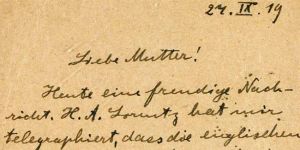 27. IX. 19
Liebe Mutter!
Heute eine freudige Nach-
richt. H. A. Lorentz hat mir
telegraphiert, dass die englischen